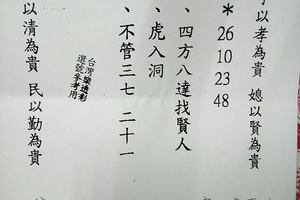 子以孝為貴 媳以賢為貴
*
26
10
23
48
、四方八達找賢人
、虎入洞
、不管三七 二十一
台灣樂透彩
選號參考用
以清為貴 民以勤為貴